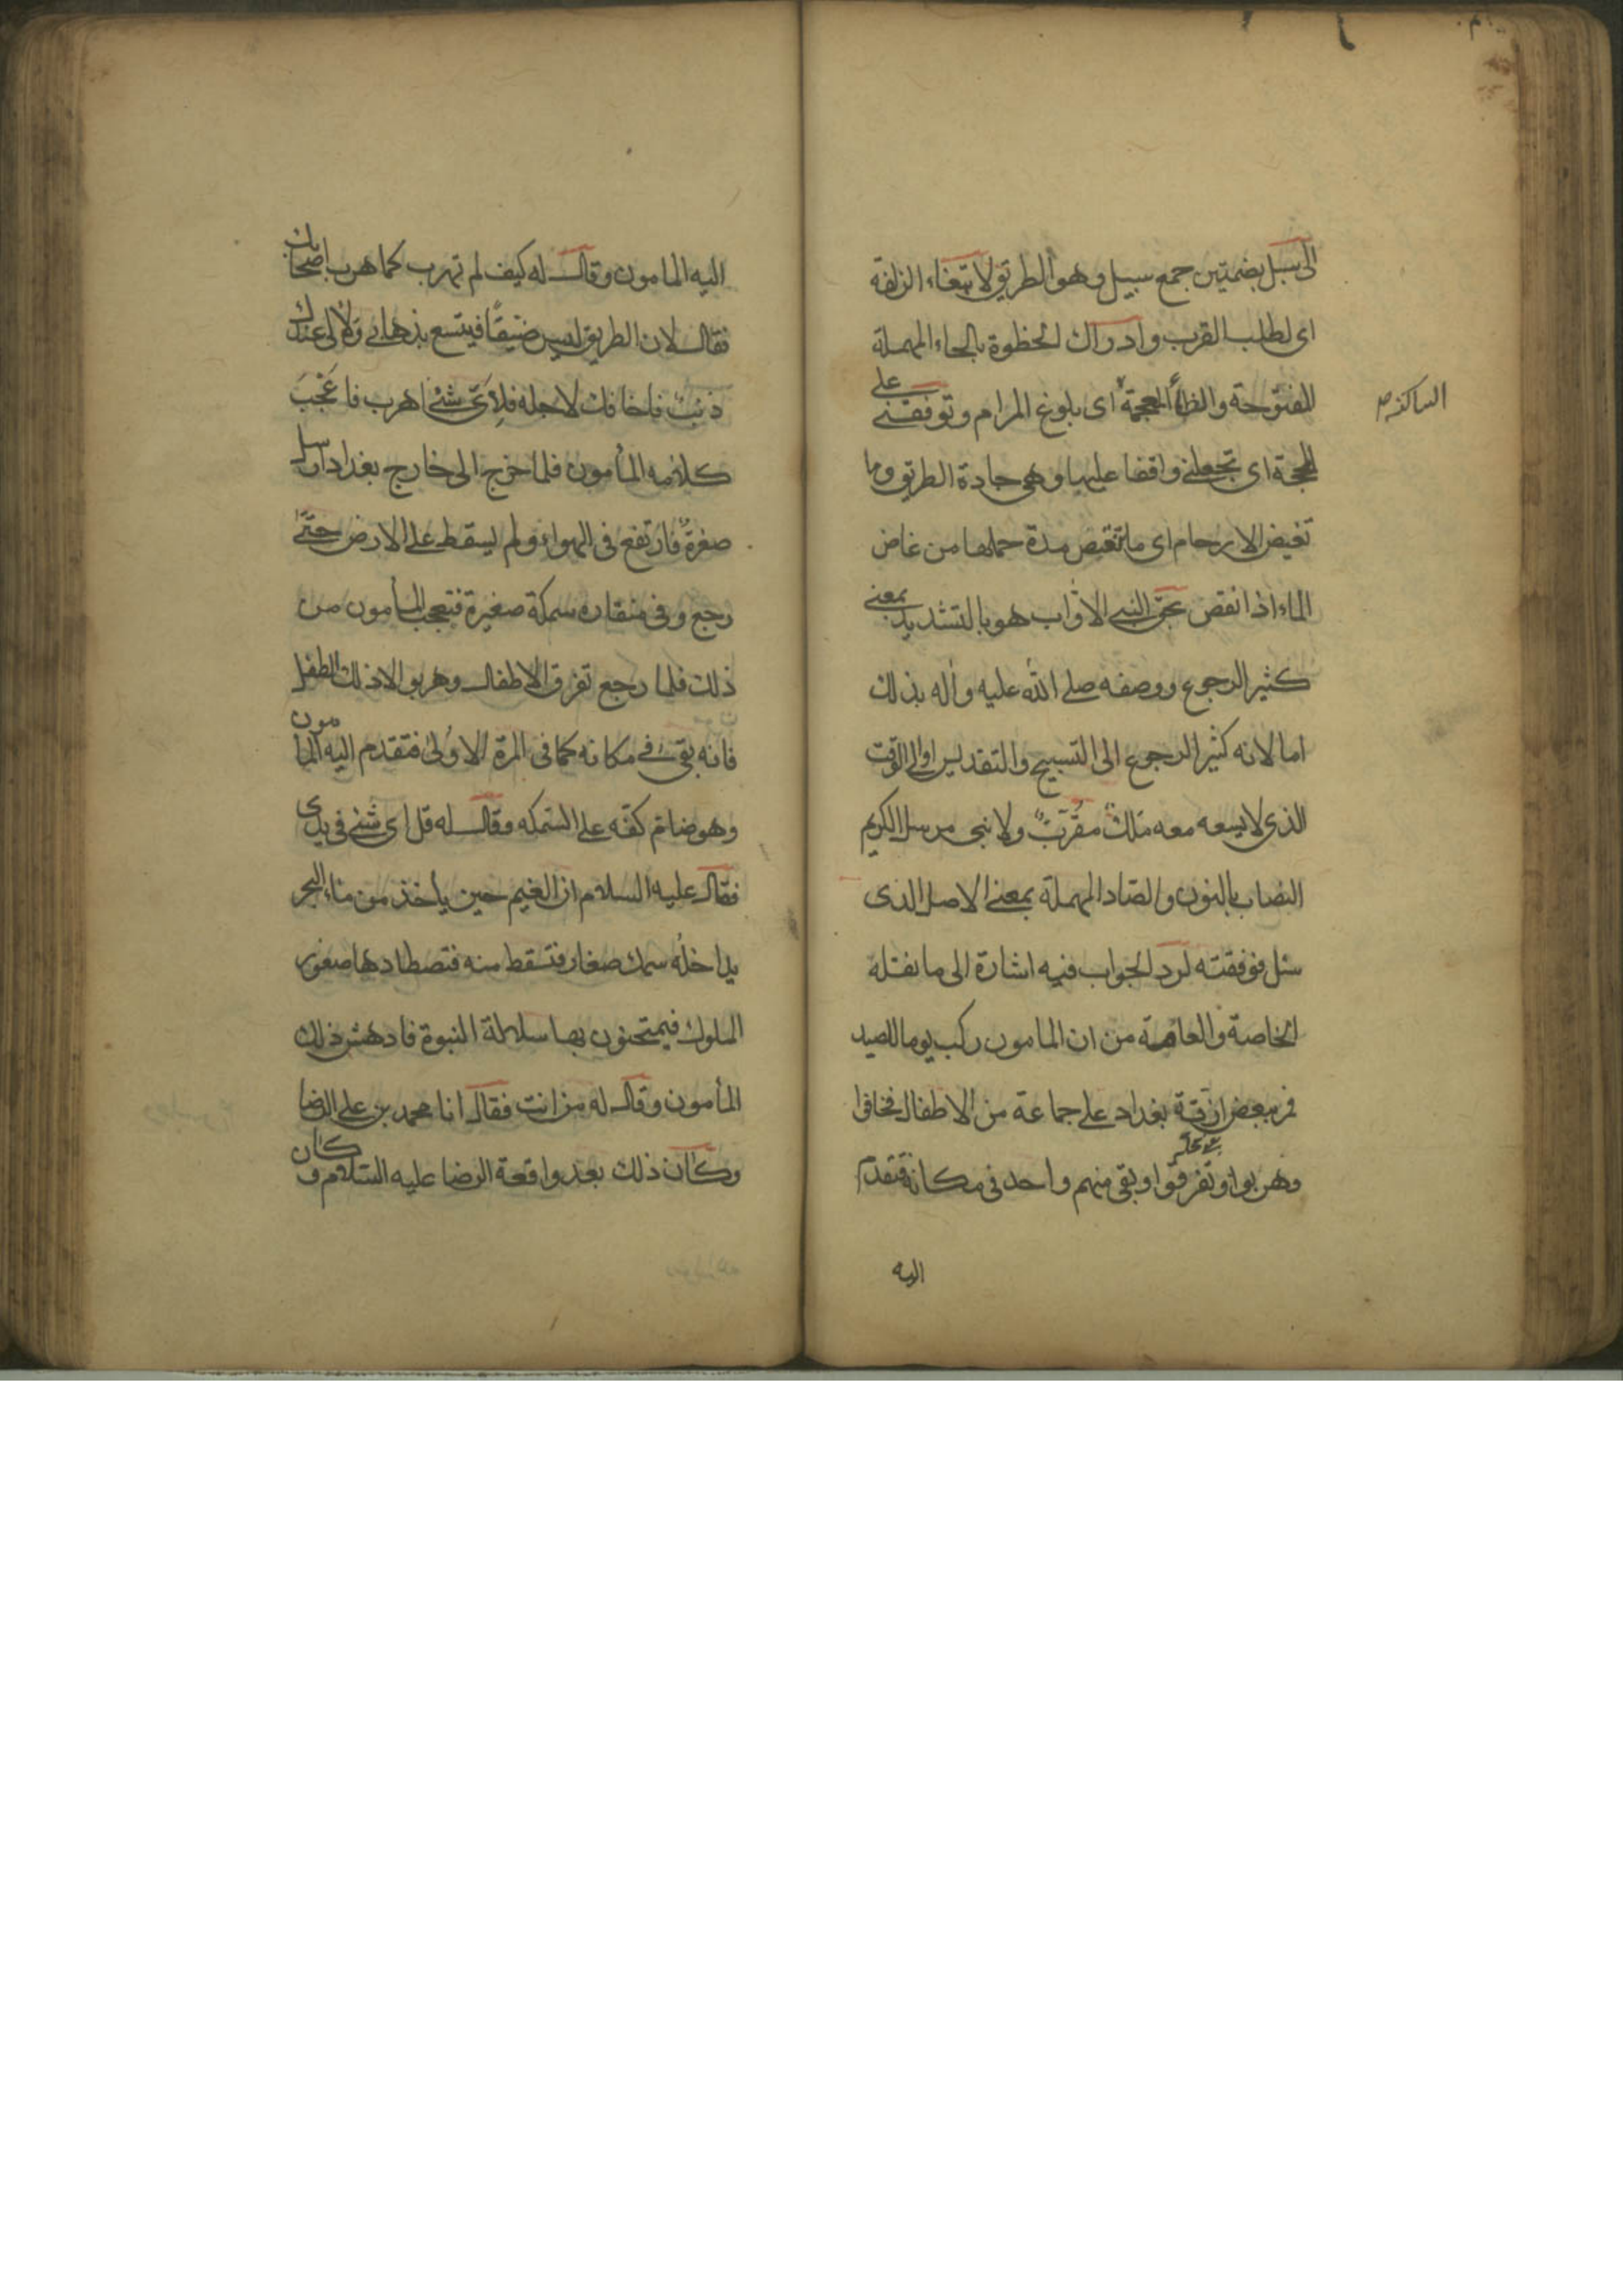 الى سبل بضمتين جمع سبيل وهو الطريق لابتغاء الزلفة
اى لطلب القرب وادراك الحظوة بالحاء المهملة
المفتوحة والظاء المعجمة اى بلوغ المرام وتوفقنى على
الساكنة
المحجة اى تجعلنى واقفا عليها وهى جادة الطريق وما
تغيض الارحام اى ما تنقص مدة حملها من غاض
الماء اذا نقص بحق النبى الاواب هو بالتشديد بمعنى
كثير الرجوع ووصفه صلى الله عليه واله بذلك
اما لانه كثير الرجوع الى التسبيح والتقديس او الى الوقت
الذى لا يسعه معه ملك مقرب ولا نبى مرسل الكريم
النصاب بالنون والصاد المهملة بمعنى الاصل الذى
سئل فوفقته لرد الجواب فيه اشارة الى ما نقله
الخاصة والعامة من ان المامون ركب يوما للصيد
فمر ببعض ازقة بغداد على جماعة من الاطفال فخافوا
وهربوا وتفرقوا وبقى منهم واحد فى مكانه فتقدم
اليه
اليه المامون وقال له كيف لم تهرب كما هرب اصحابك
فقال لان الطريق ليس ضيقا فيتسع بذهابى ولا لى عندك
ذنب فاخافك لاجله فلاى شئ اهرب فاعجب
كلامه المأمون فلما خرج الى خارج بغداد ارسل
صقره فارتفع فى الهواء ولم يسقط على الارض حتى
رجع وفى منقاره سمكة صغيرة فتعجب المأمون من
ذلك فلما رجع تفرق الاطفال وهربوا الا ذلك الطفل
فانه بقى فى مكانه كما فى المرة الاولى فتقدم اليه المامون
وهو ضام كفه على السمكه وقال له قل اى شئ فى يدى
فقال عليه السلام ان الغيم حين ياخذ من ماء البحر
يداخله سمك صغار فتسقط منه فتصطادها صقور
الملوك فيمتحنون بها سلالة النبوة فادهش ذلك
المأمون وقال له من انت فقال انا محمد بن على الرضا
وكان ذلك بعد واقعة الرضا عليه السلام وكان